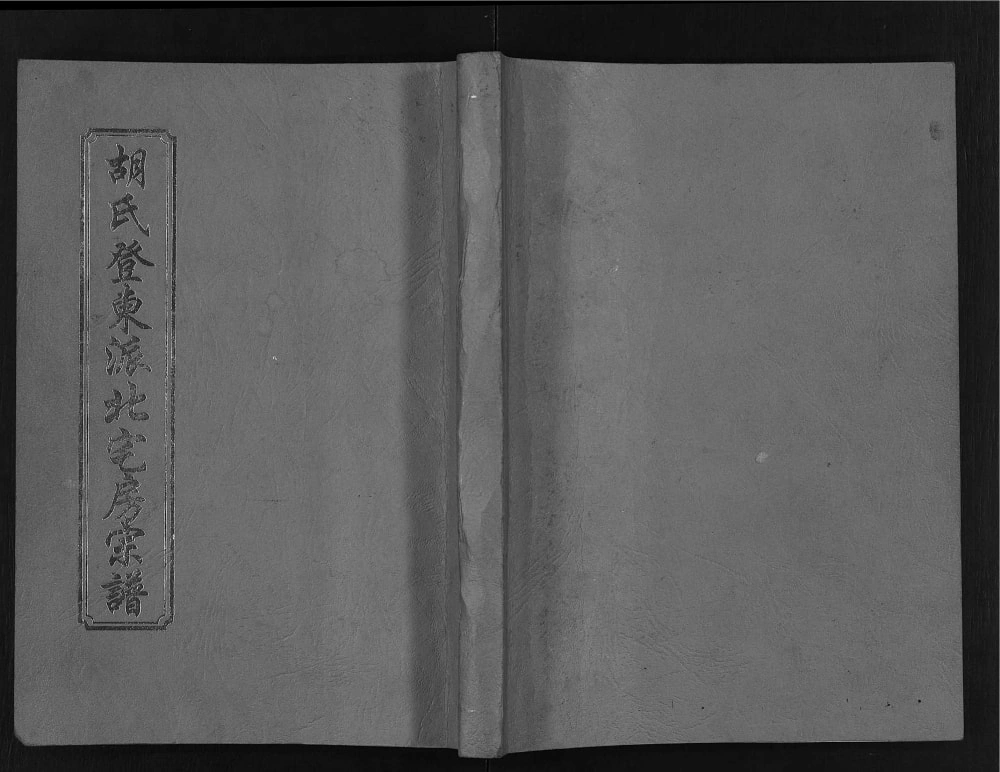 胡氏登東派北宅房宗譜